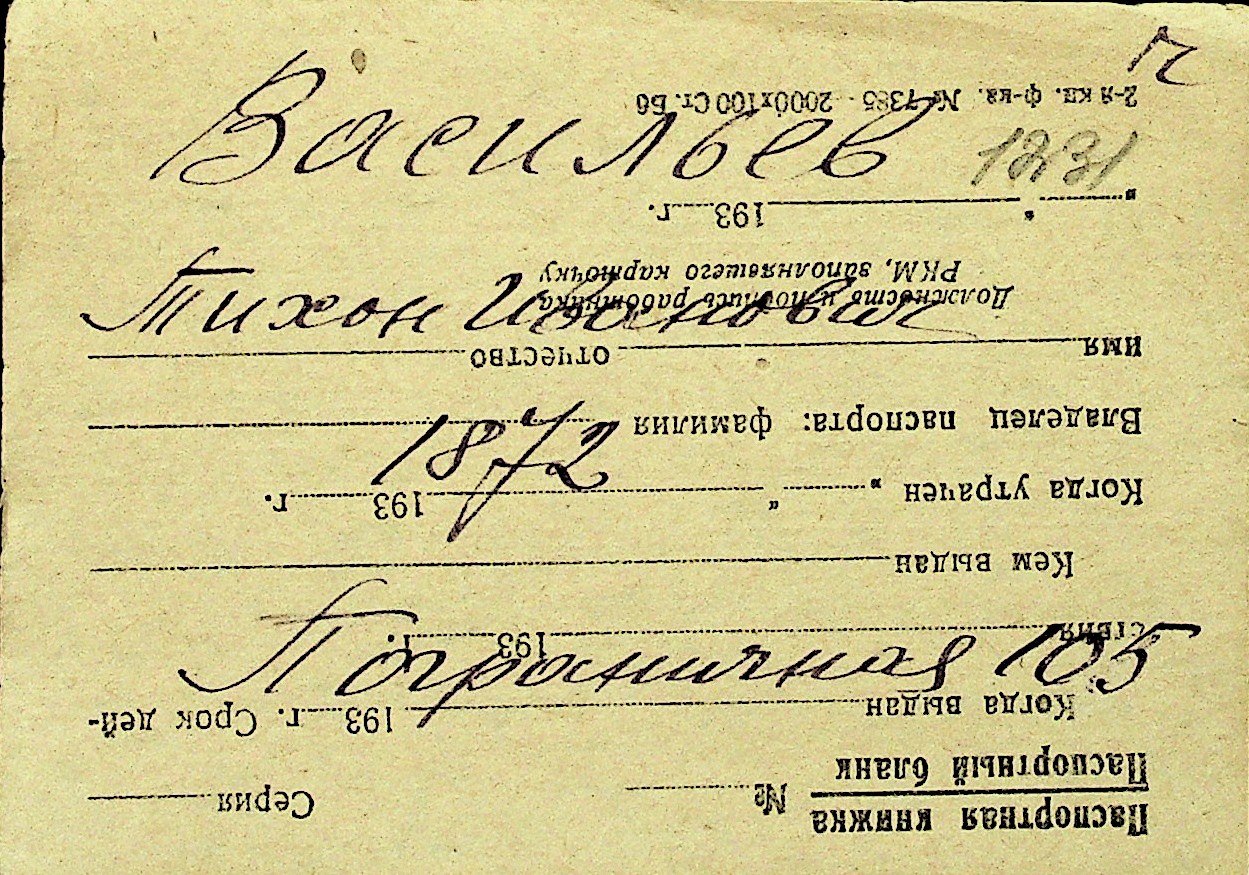 ч
Васильев
1231
Тихон Иванович
1872
Пограничная 105
Паспортная книжка
Паспортный бланк
№ Серия
Когда выдан 193 г. Срок дей-
ствия 193 г.
Кем выдан
Когда утрачен „ “ 193 г.
Владелец паспорта: фамилия
имя отчество
Должность и подпись работника
РКМ, заполнявшего карточку
„ “ 193 г.
2-я кп. ф-ка. № 1385 2000х100 Ст. Бб